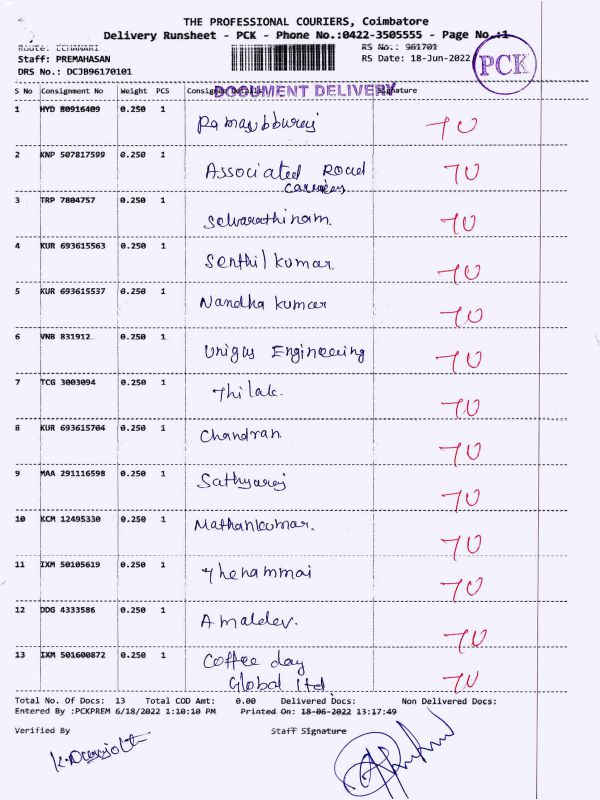 THE PROFESSIONAL COURIERS, Coimbatore
Delivery Runsheet - PCK - Phone No.:0422-3505555 - Page No.:1
Route: ECHANARI RS No.: 961701
Staff: PREMAHASAN RS Date: 18-Jun-2022
DRS No.: DCJB96170101
PCK
S No Consignment No Weight PCS Consignee Details Signature
DOCUMENT DELIVERY
1 HYD 80916409 0.250 1 70
2 KNP 507817599 0.250 1 Associated Road 70
carriers
3 TRP 7804757 0.250 1 Selvarathinam. 70
4 KUR 693615563 0.250 1 Senthil kumar. 70
5 KUR 693615537 0.250 1 Nandha kumar 70
6 VNB 831912 0.250 1 Engineering 70
7 TCG 3003094 0.250 1 Thilak. 70
8 KUR 693615704 0.250 1 Chandran 70
9 MAA 291116598 0.250 1 Sathyaraj 70
10 KCM 12495330 0.250 1 Mathankumar. 70
11 IXM 50105619 0.250 1 Thenammai 70
12 DDG 4333586 0.250 1 Amaldev. 70
13 IXM 501600872 0.250 1 Coffee day 70
Global ltd.
Total No. Of Docs: 13 Total COD Amt: 0.00 Delivered Docs: Non Delivered Docs:
Entered By :PCKPREM 6/18/2022 1:10:10 PM Printed On: 18-06-2022 13:17:49
Verified By Staff Signature